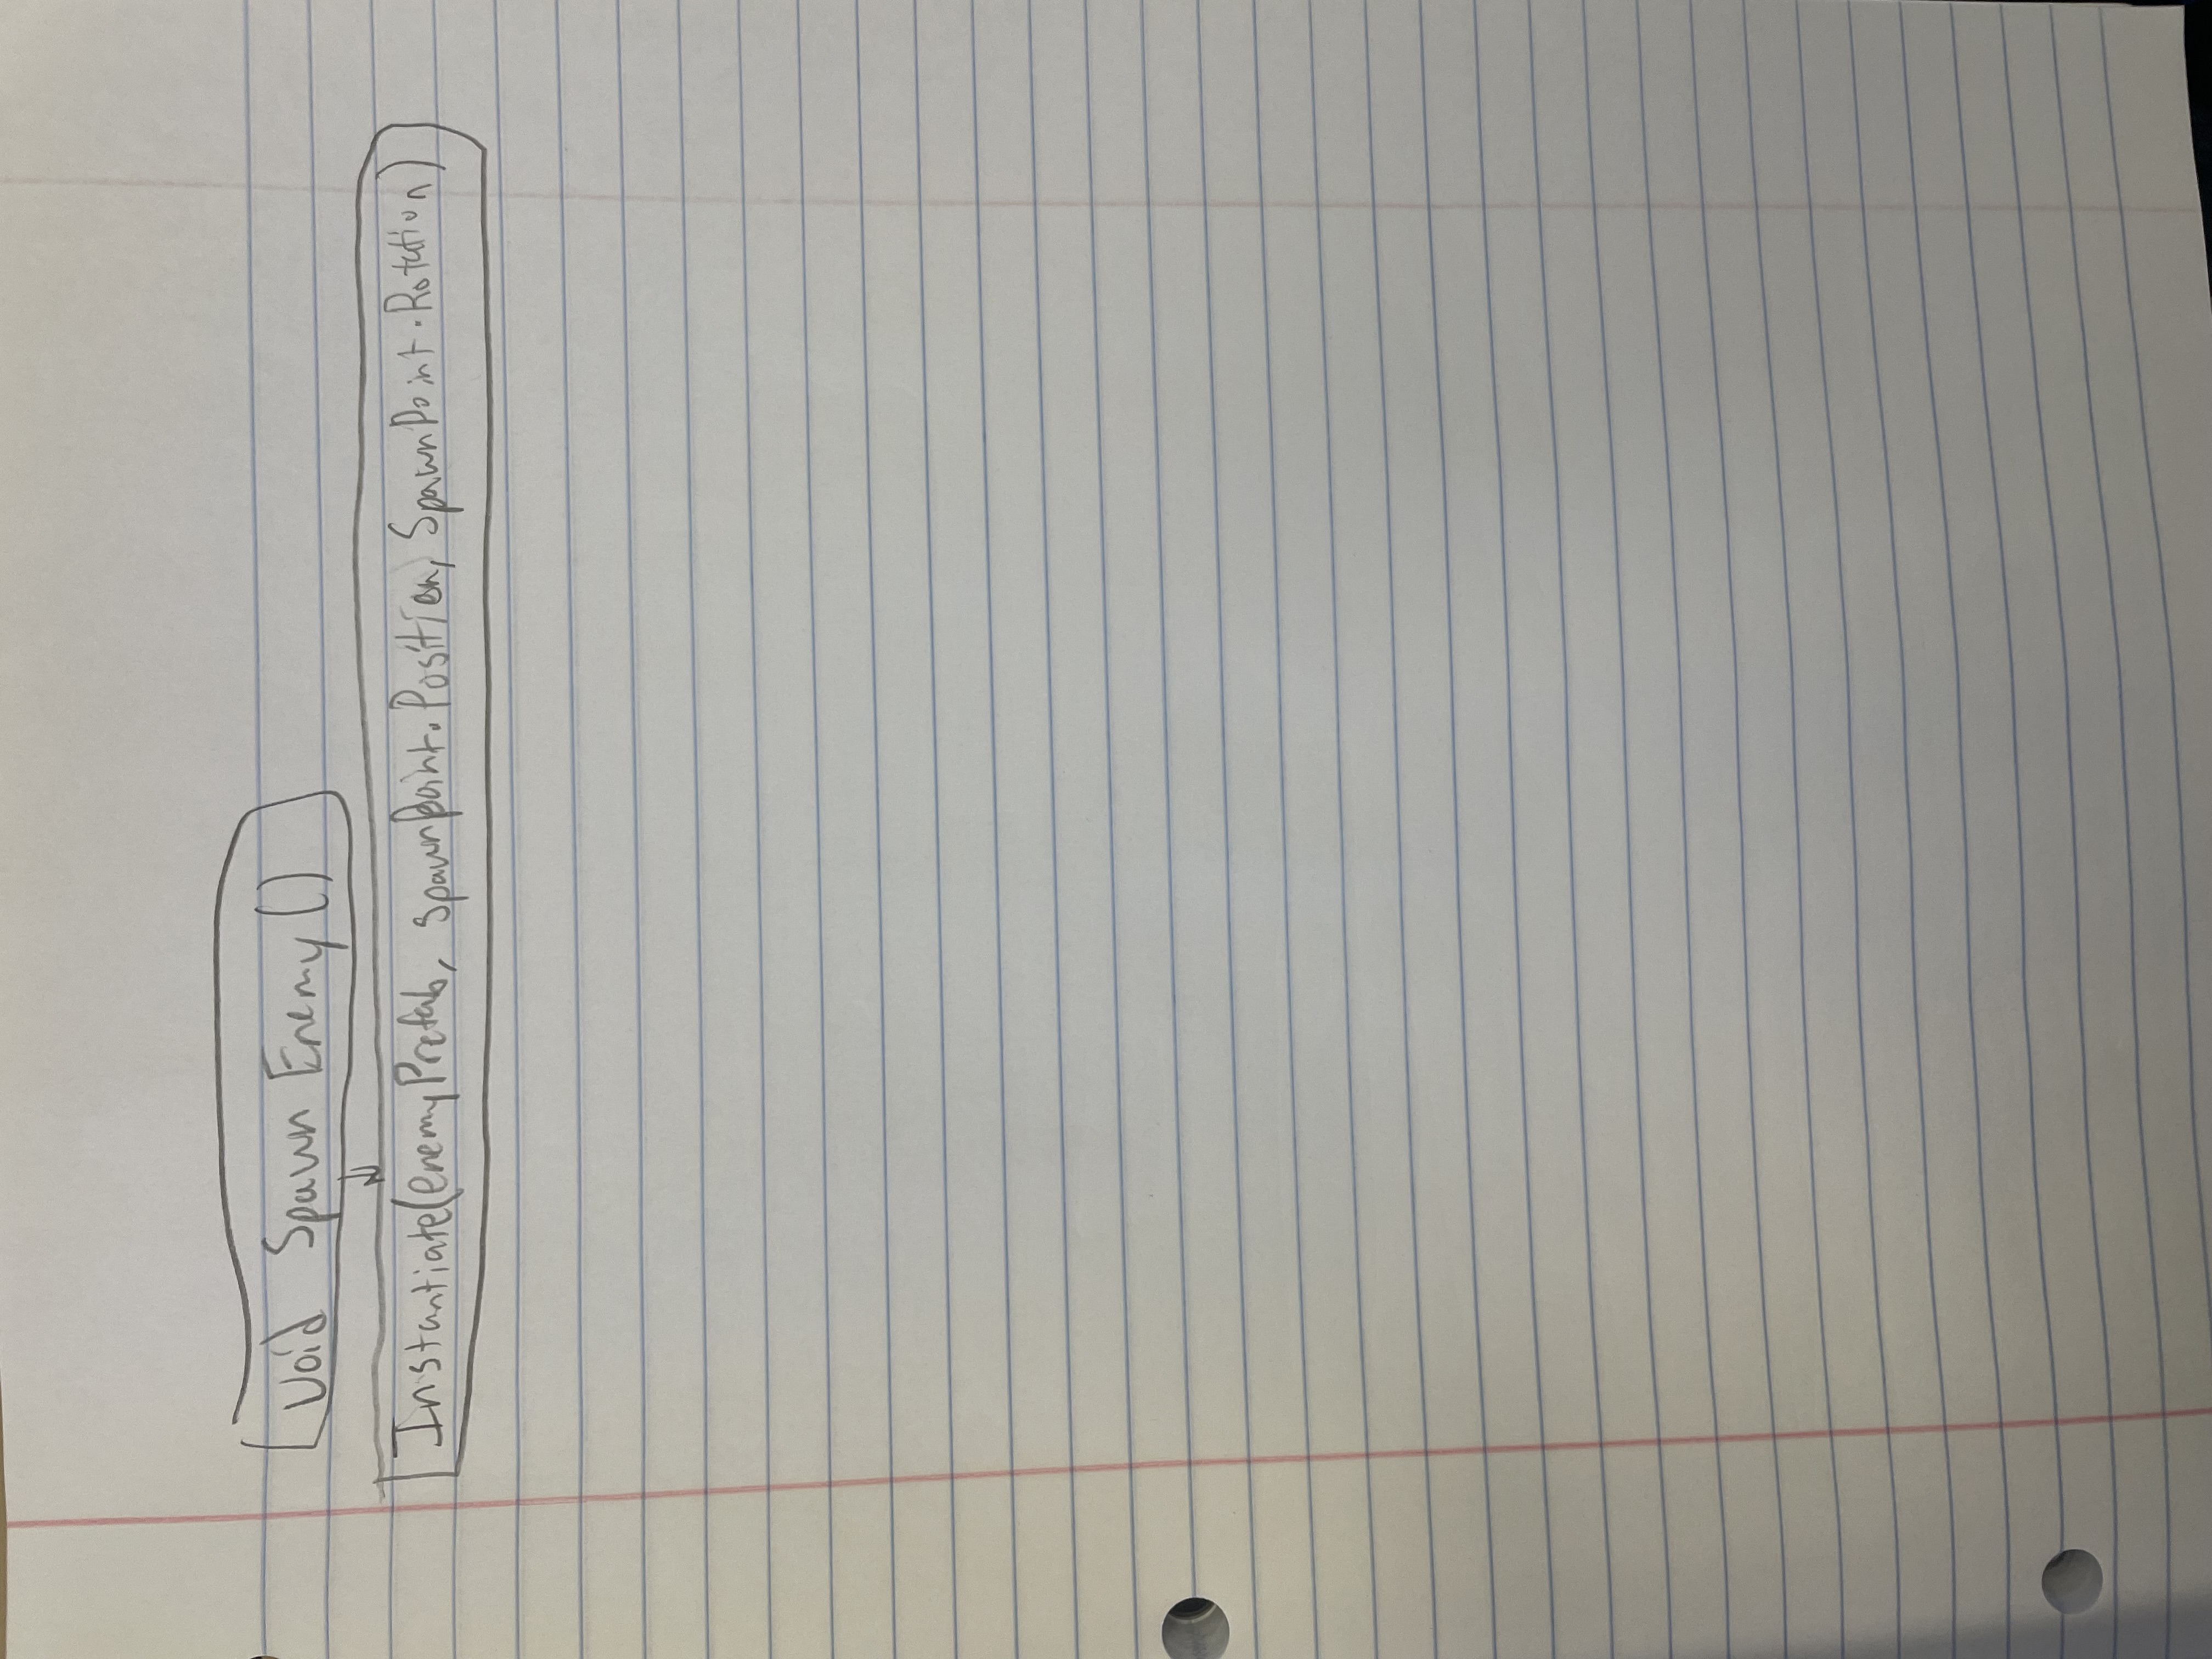 void Spawn Enemy()
Instantiate(enemyPrefab, spawnpoint.Position, SpawnPoint.Rotation)